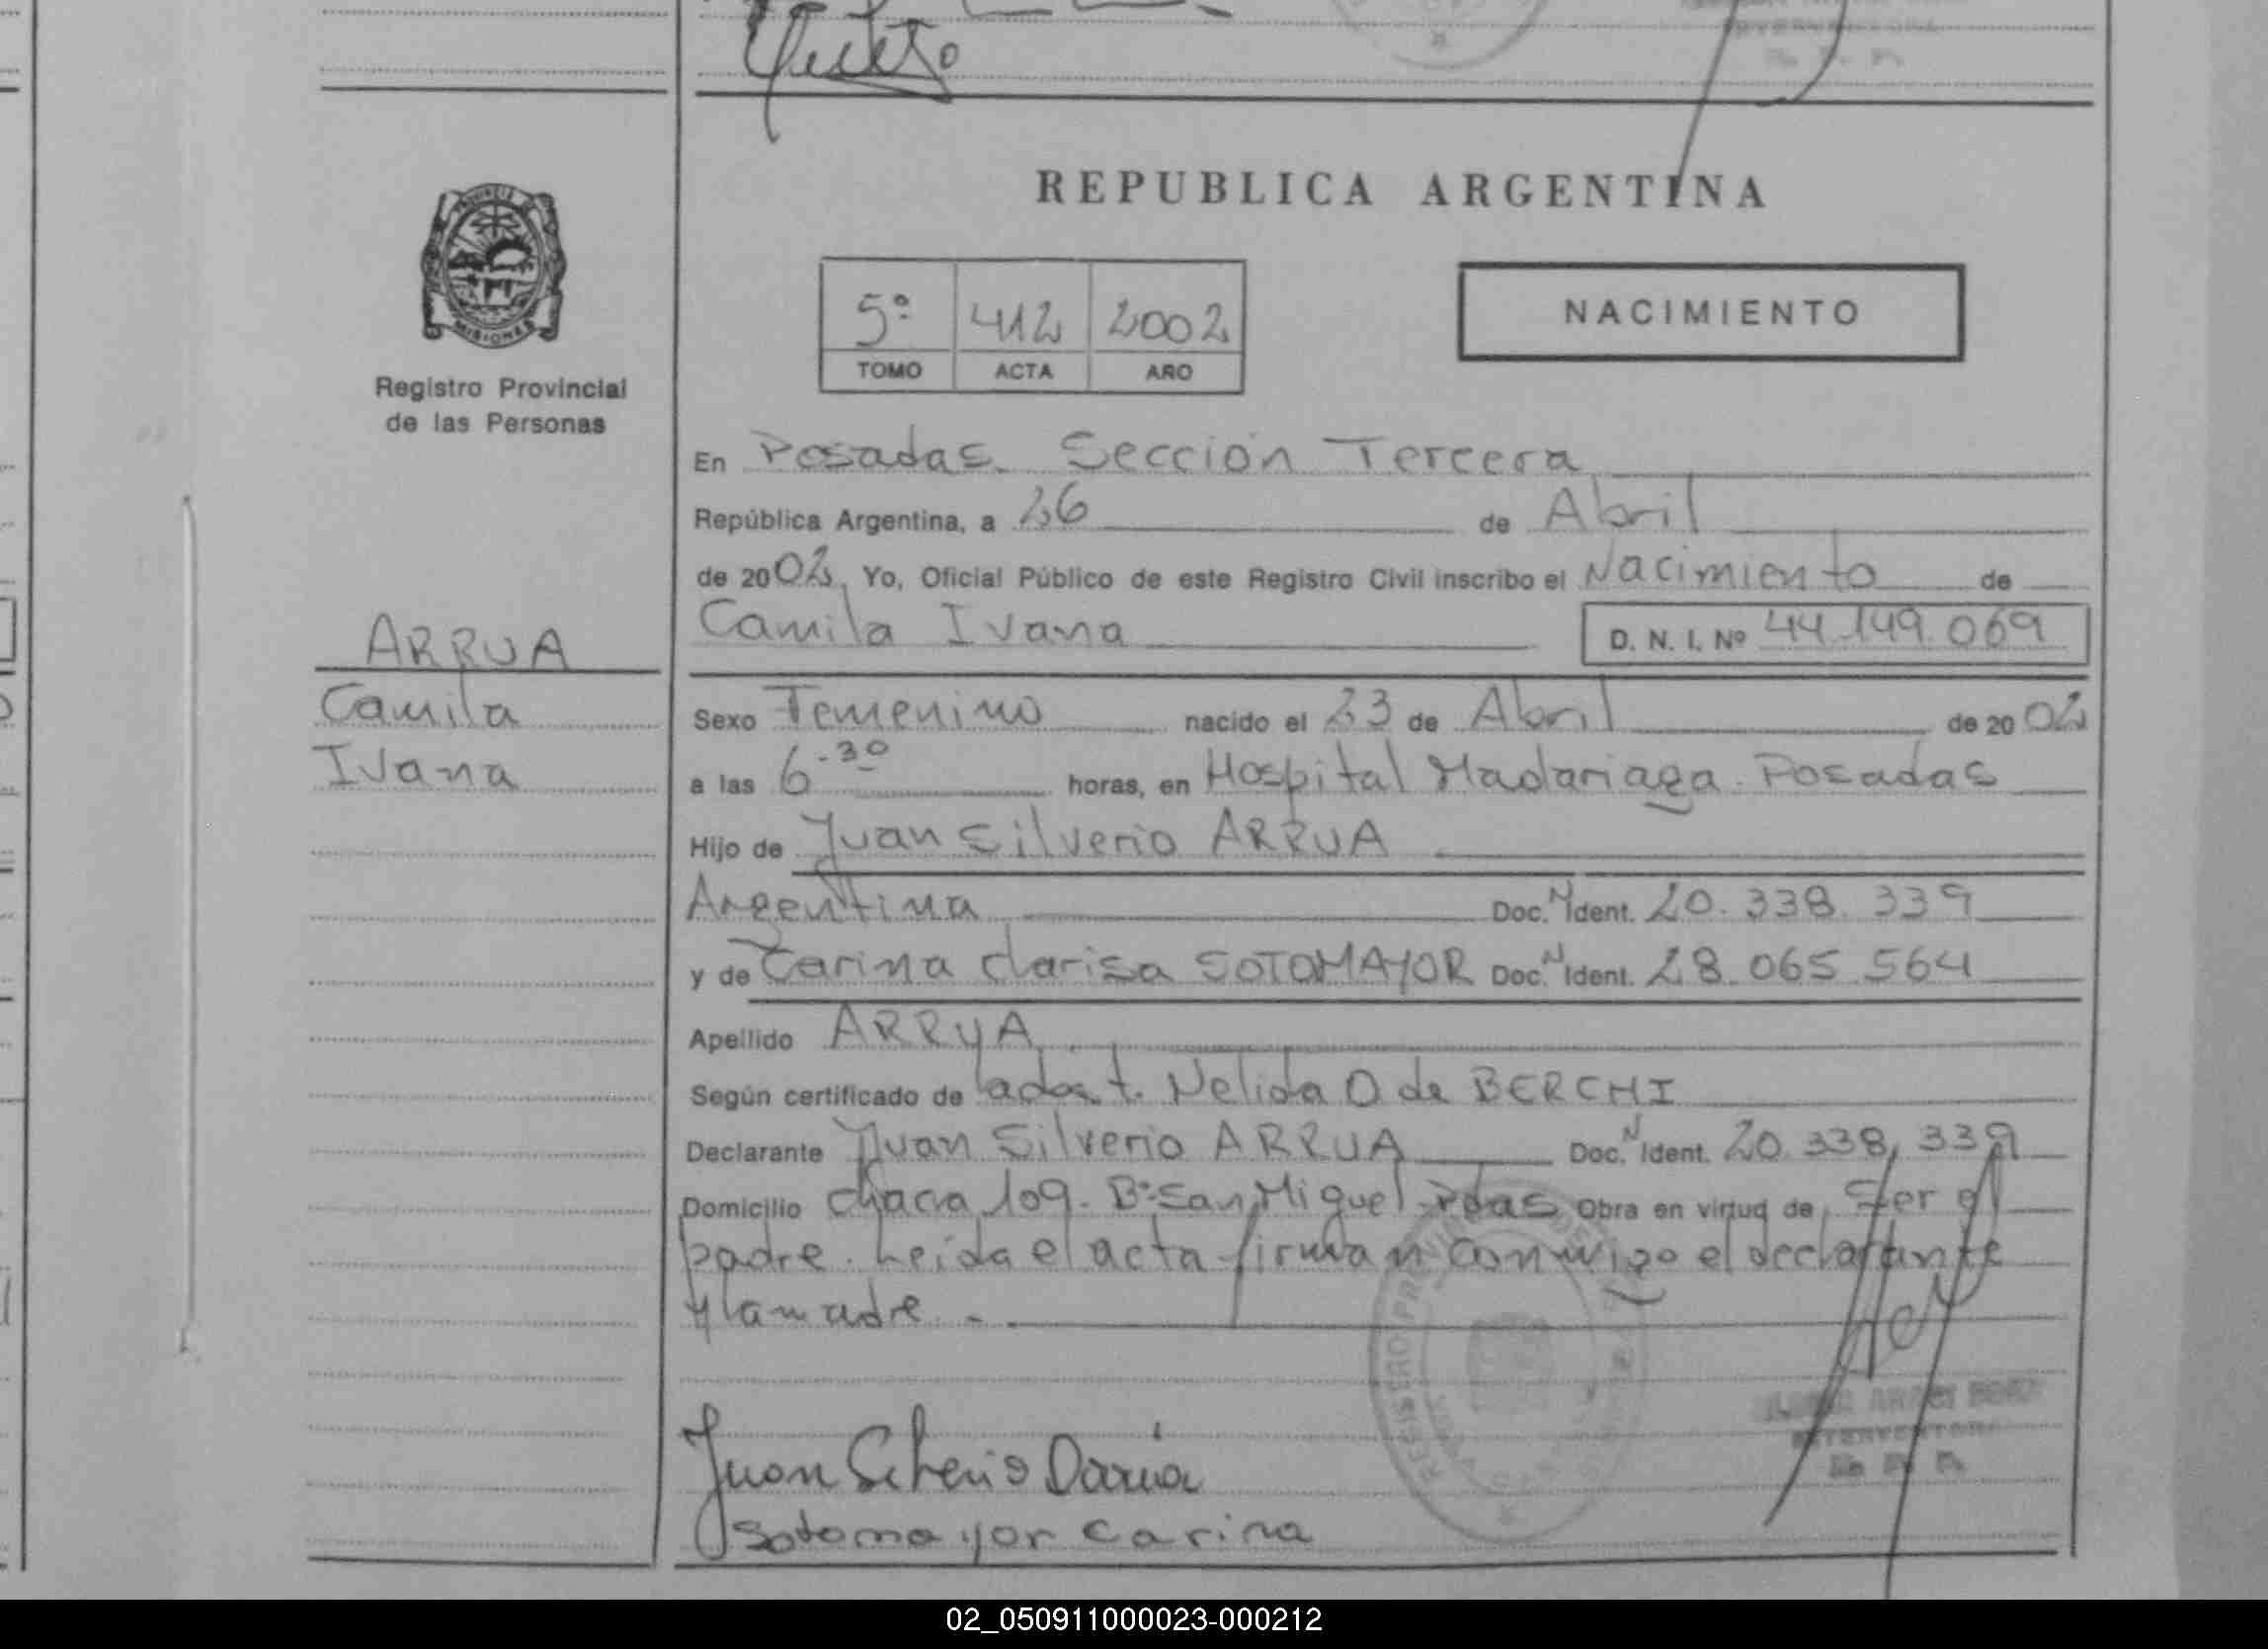 REPUBLICA ARGENTINA
PROVINCIA
MISIONES
Registro Provincial
de las Personas
5º 412 2002
TOMO ACTA AÑO
NACIMIENTO
En Posadas. Sección Tercera
República Argentina, a 26 de Abril
de 2002. Yo, Oficial Público de este Registro Civil inscribo el Nacimiento de
Camila Ivana D. N. I. Nº 44.149.069
ARRUA
Camila
Ivana
Sexo Femenino nacido el 23 de Abril de 2002
a las 6.30 horas, en Hospital Madariaga. Posadas
Hijo de Juan Silverio ARRUA
Argentina Doc. N Ident. 20.338.339
y de Carina Clarisa SOTOMAYOR Doc. N Ident. 28.065.564
Apellido ARRUA
Según certificado de Nelida O de BERCHI
Declarante Juan Silverio ARRUA Doc. N Ident. 20.338.339
Domicilio Chacra 109. Bº San Miguel. Pdas Obra en virtud de Ser el
padre. Leida el acta firman conmigo el declarante
y la madre. -
REGISTRO
INTERVENTORA
Juan
Sotomayor Carina
02_050911000023-000212